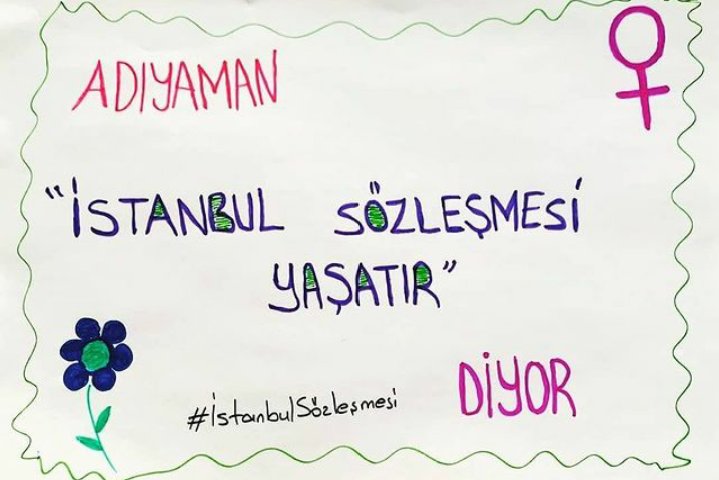 ADIYAMAN
"İSTANBUL SÖZLEŞMESİ
YAŞATIR"
DİYOR
#istanbulSözleşmesi